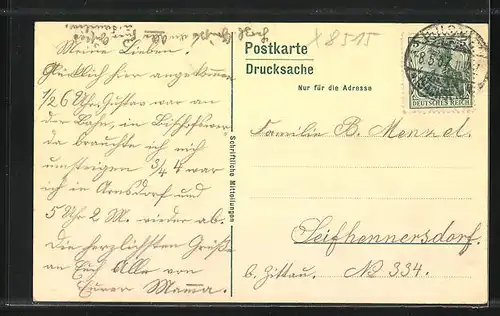 Meine Lieben!
Glücklich hier angekommen
1/26 Uhr. Gustav war an
der Bahn, in Bischofswer-
da brauchte ich nich
umsteigen 3/4 4 war
ich in Arnsdorf und
5 Uhr 2 M. wieder ab.
Die herzlichsten Grüße
an Euch Alle von
Eurer Mama.
Schriftliche Mitteilungen
Postkarte
Drucksache
X 8515
Nur für die Adresse
DEUTSCHES REICH
Familie B. Menzel.
Seifhennersdorf.
b. Zittau. No 334.